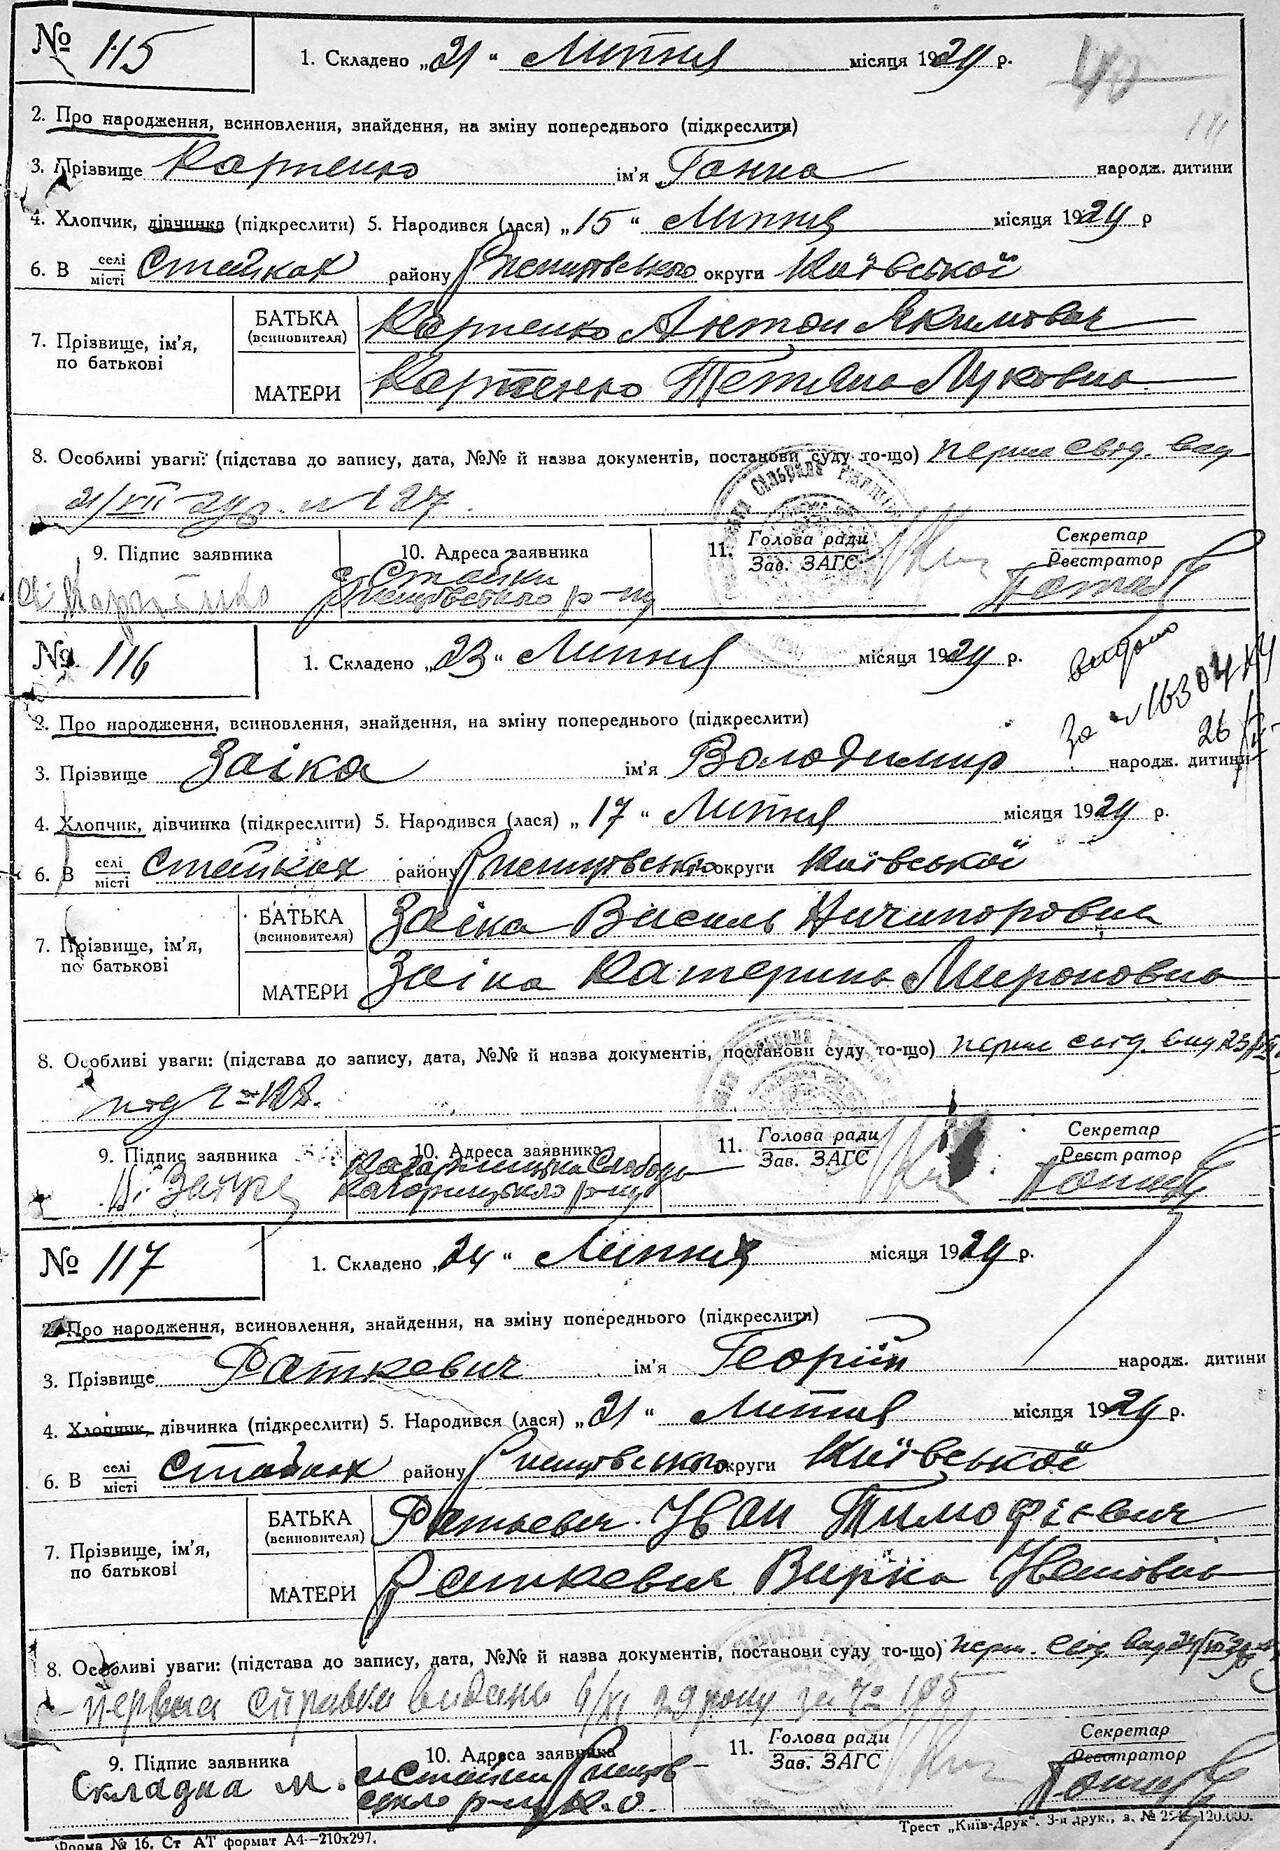 № 115
1. Складено „21“ Липня місяця 1929 р.
40
2. Про народження, всиновлення, знайдення, на зміну попереднього (підкреслити)
3. Прізвище Карпенко ім'я Ганна народж. дитини
4. Хлопчик, дівчинка (підкреслити) 5. Народився (лася) „15“ Липня місяця 1929 р
6. В селі місті Стайках району Ржищівського округи Київської
7. Прізвище, ім'я, по батькові
БАТЬКА (всиновителя) Карпенко Антон Якимович
МАТЕРИ Карпенко Тетяна Луковна
8. Особливі уваги: (підстава до запису, дата, №№ й назва документів, постанови суду то-що) перше свід. вид
21/VII 29р. № 127
9. Підпис заявника
10. Адреса заявника
с. Стайки
Ржищівського р-ну
11. Голова ради
Зав. ЗАГС
Секретар
Реєстратор
№ 116
1. Складено „23“ Липня місяця 1929 р.
видано
за №16304
26
2. Про народження, всиновлення, знайдення, на зміну попереднього (підкреслити)
3. Прізвище Заіка ім'я Володимир народж. дитини
4. Хлопчик, дівчинка (підкреслити) 5. Народився (лася) „17“ Липня місяця 1929 р.
6. В селі місті Стайках району Ржищівського округи Київської
7. Прізвище, ім'я, по батькові
БАТЬКА (всиновителя) Заіка Василь Ничипорович
МАТЕРИ Заіка Катерина Мироновна
8. Особливі уваги: (підстава до запису, дата, №№ й назва документів, постанови суду то-що) перше свід. вид 23/VII
9. Підпис заявника
10. Адреса заявника
Кагарлицька Слобода
Кагарлицького р-ну
11. Голова ради
Зав. ЗАГС
Секретар
Реєстратор
№ 117
1. Складено „24“ Липня місяця 1929 р.
2. Про народження, всиновлення, знайдення, на зміну попереднього (підкреслити)
3. Прізвище Раткевич ім'я Георгій народж. дитини
4. Хлопчик, дівчинка (підкреслити) 5. Народився (лася) „21“ Липня місяця 1929 р.
6. В селі місті Стайках району Ржищівського округи Київської
7. Прізвище, ім'я, по батькові
БАТЬКА (всиновителя) Раткевич Іван Тимофієвич
МАТЕРИ Раткевич Вирка Ивановна
8. Особливі уваги: (підстава до запису, дата, №№ й назва документів, постанови суду то-що) перш. свід. вид 24/VII
первая справка видана 6/XI 29 року за № 195
9. Підпис заявника
Складна М.
10. Адреса заявника
с. Стайки Ржищів
ського р-ну К.О.
11. Голова ради
Зав. ЗАГС
Секретар
Реєстратор
Форма № 16. Ст АТ формат А4—210х297.
Трест „Київ-Друк“. 3-я друк., з. № 120.000.